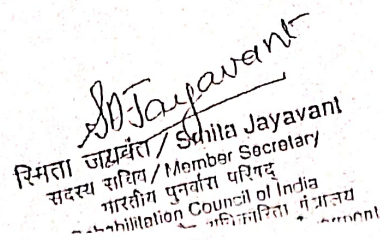 SDJayavant
स्मिता जयवंत / Smita Jayavant
सदस्य सचिव / Member Secretary
भारतीय पुनर्वास परिषद्
Rehabilitation Council of India
मंत्रालय